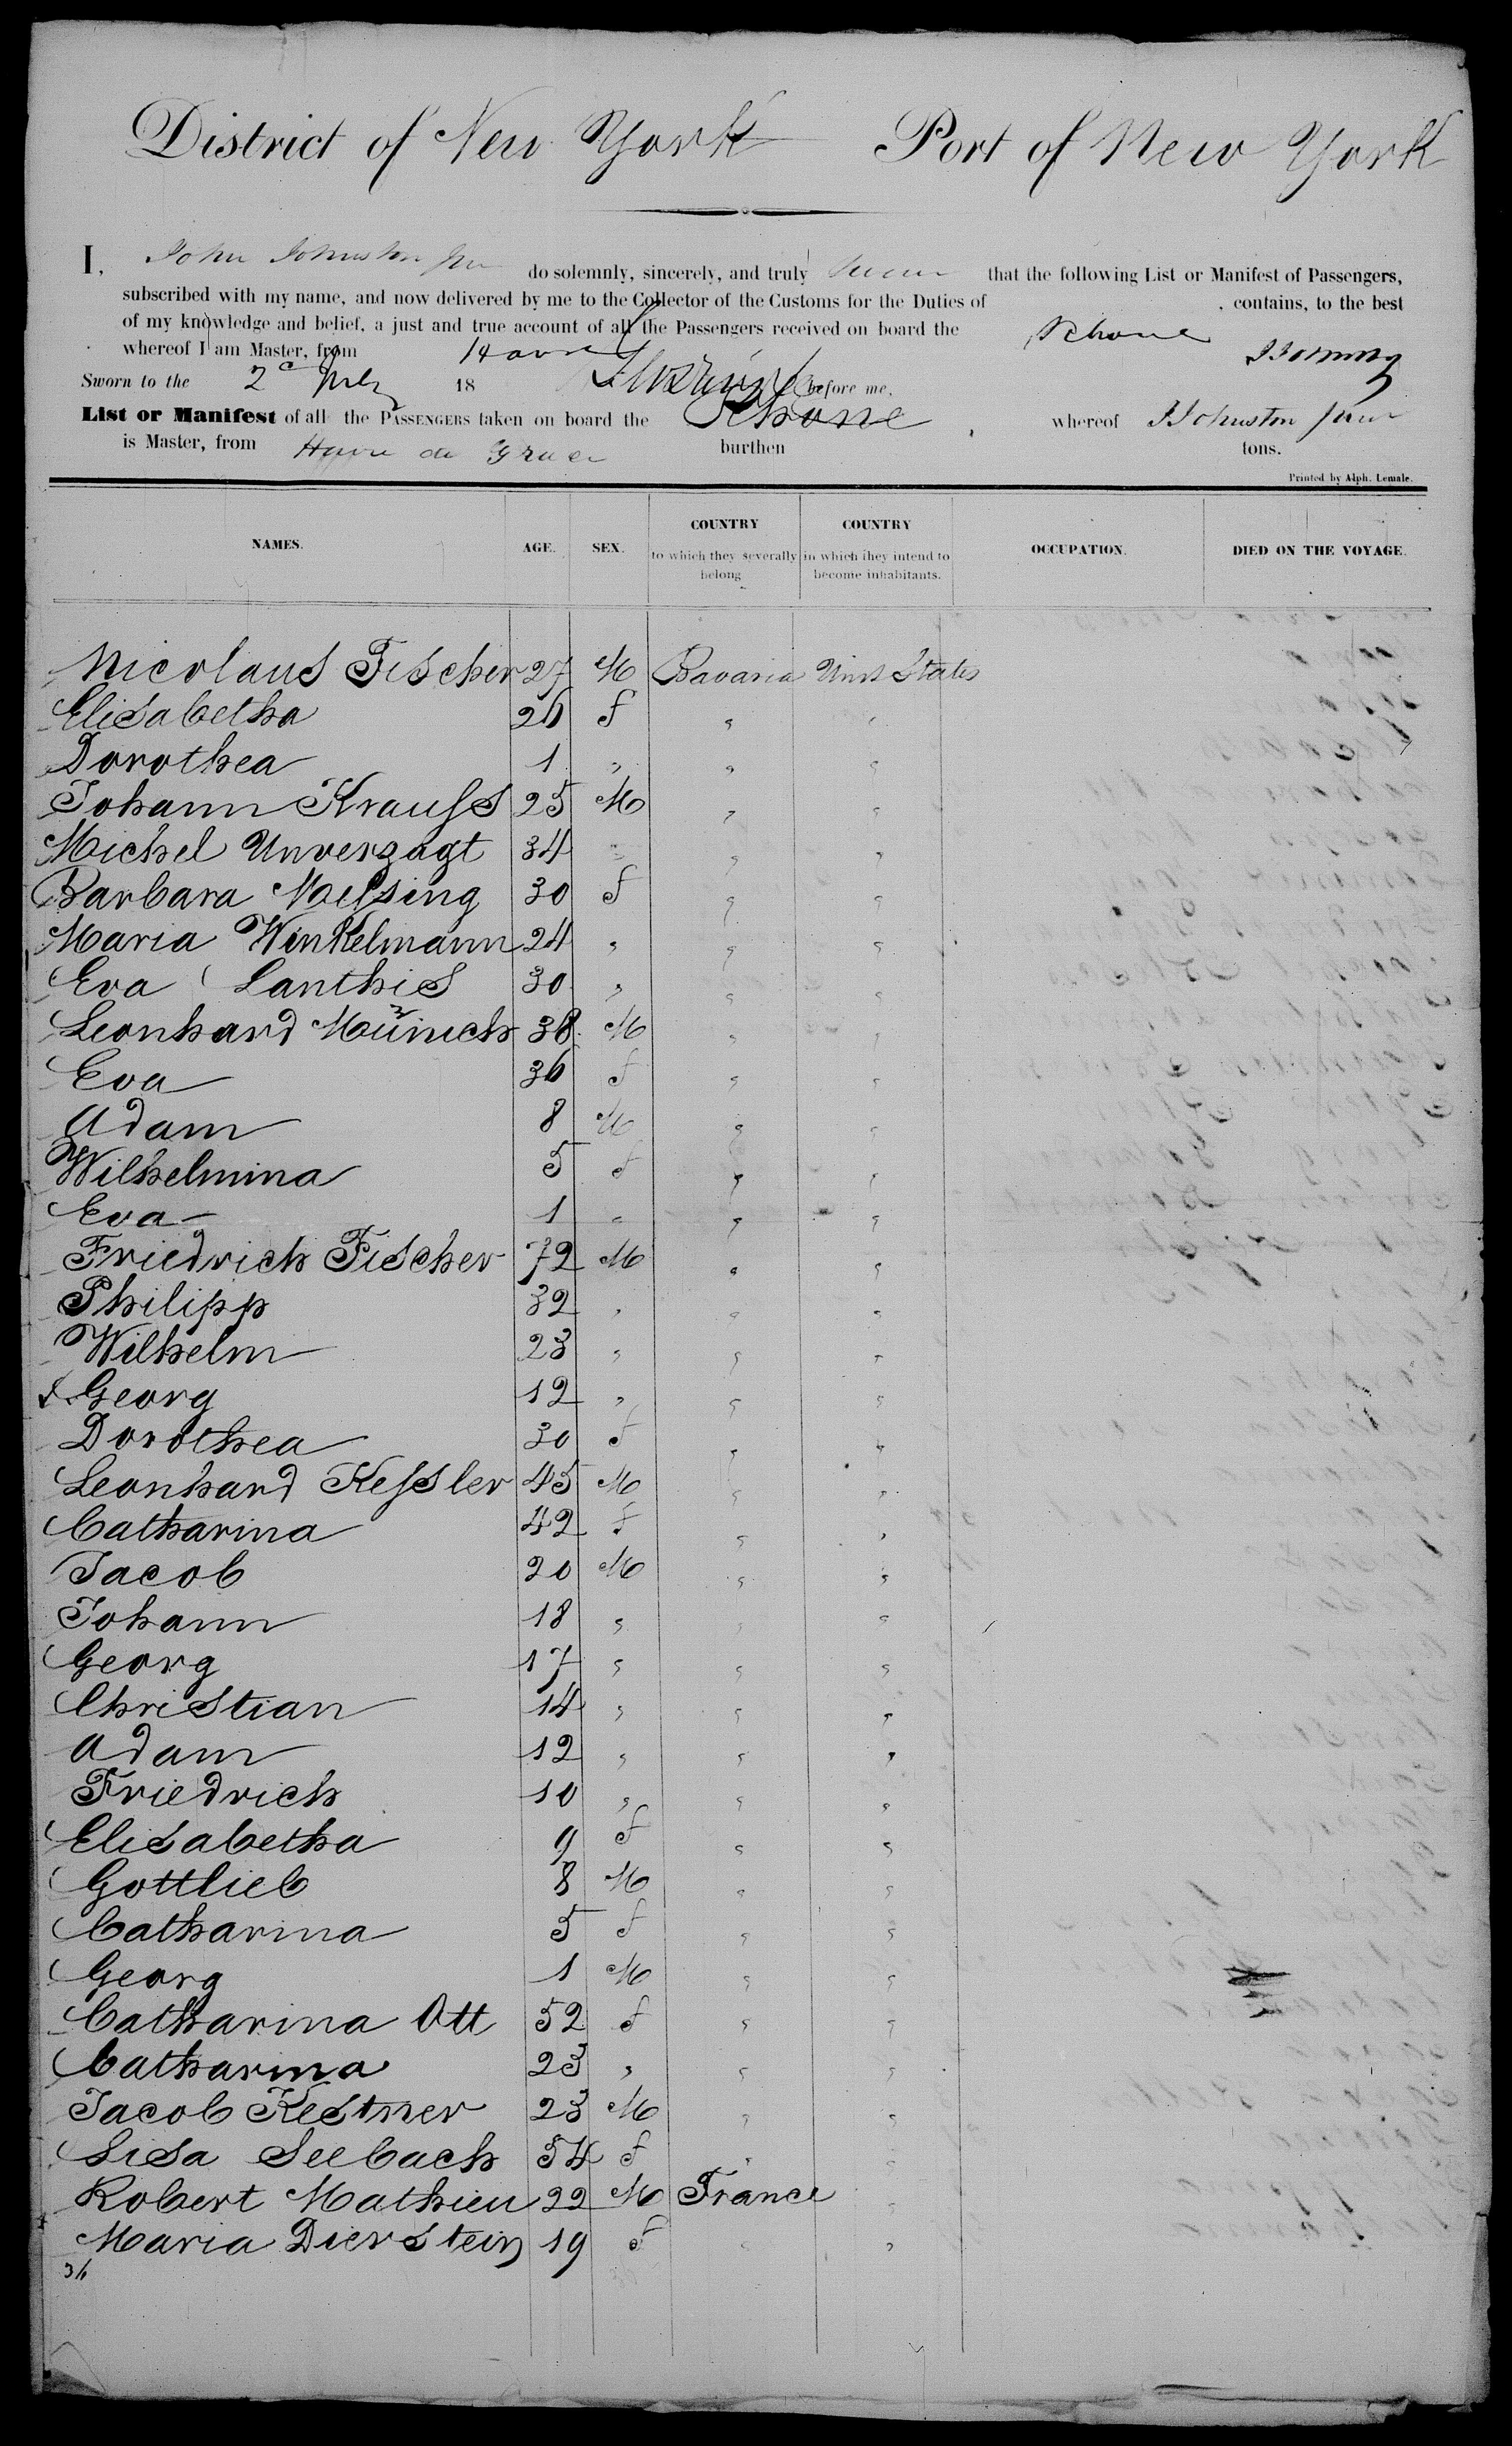 District of New York Port of New York
I, John Johnston Jun do solemnly, sincerely, and truly swear that the following List or Manifest of Passengers,
subscribed with my name, and now delivered by me to the Collector of the Customs for the Duties of , contains, to the best
of my knowledge and belief, a just and true account of all the Passengers received on board the Rhone
whereof I am Master, from Havre
Sworn to the 2d July 18 before me,
List or Manifest of all the PASSENGERS taken on board the Rhone whereof J Johnston Junr
is Master, from Havre de Grace burthen tons.
Printed by Alph. Lemale.
NAMES. AGE. SEX. COUNTRY to which they severally belong COUNTRY in which they intend to become inhabitants. OCCUPATION. DIED ON THE VOYAGE.
Nicolaus Fischer 27 M Bavaria Unit States
Elisabetha 26 f " "
Dorothea 1 " " "
Johann Krauss 25 M " "
Michel Unverzagt 34 " " "
Barbara Messing 30 f " "
Maria Winkelmann 24 " " "
Eva Lanthis 30 " " "
Leonhard Münich 38 M " "
Eva 36 f " "
Adam 8 M " "
Wilhelmina 5 f " "
Eva 1 " " "
Friedrich Fischer 72 M " "
Philipp 32 " " "
Wilhelm 23 " " "
Georg 12 " " "
Dorothea 30 f " "
Leonhard Kessler 45 M " "
Catharina 42 f " "
Jacob 20 M " "
Johann 18 " " "
Georg 17 " " "
Christian 14 " " "
Adam 12 " " "
Friedrich 10 " " "
Elisabetha 9 f " "
Gottlieb 8 M " "
Catharina 5 f " "
Georg 1 M " "
Catharina Ott 52 f " "
Catharina 23 " " "
Jacob Kestner 23 M " "
Lisa Seebach 54 f " "
Robert Mathieu 22 M France "
Maria Dierstein 19 f " "
36